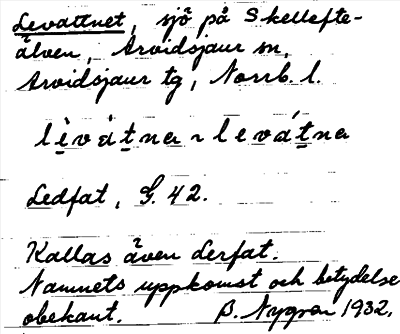 Levattnet, sjö på Skellefte-
älven, Arvidsjaur sn,
Arvidsjaur tg, Norrb. l.
lèvàtna ~ levátna
Ledfat, G. 42.
Kallas även Lerfat.
Namnets uppkomst och betydelse
obekant. B. Nygren 1932.